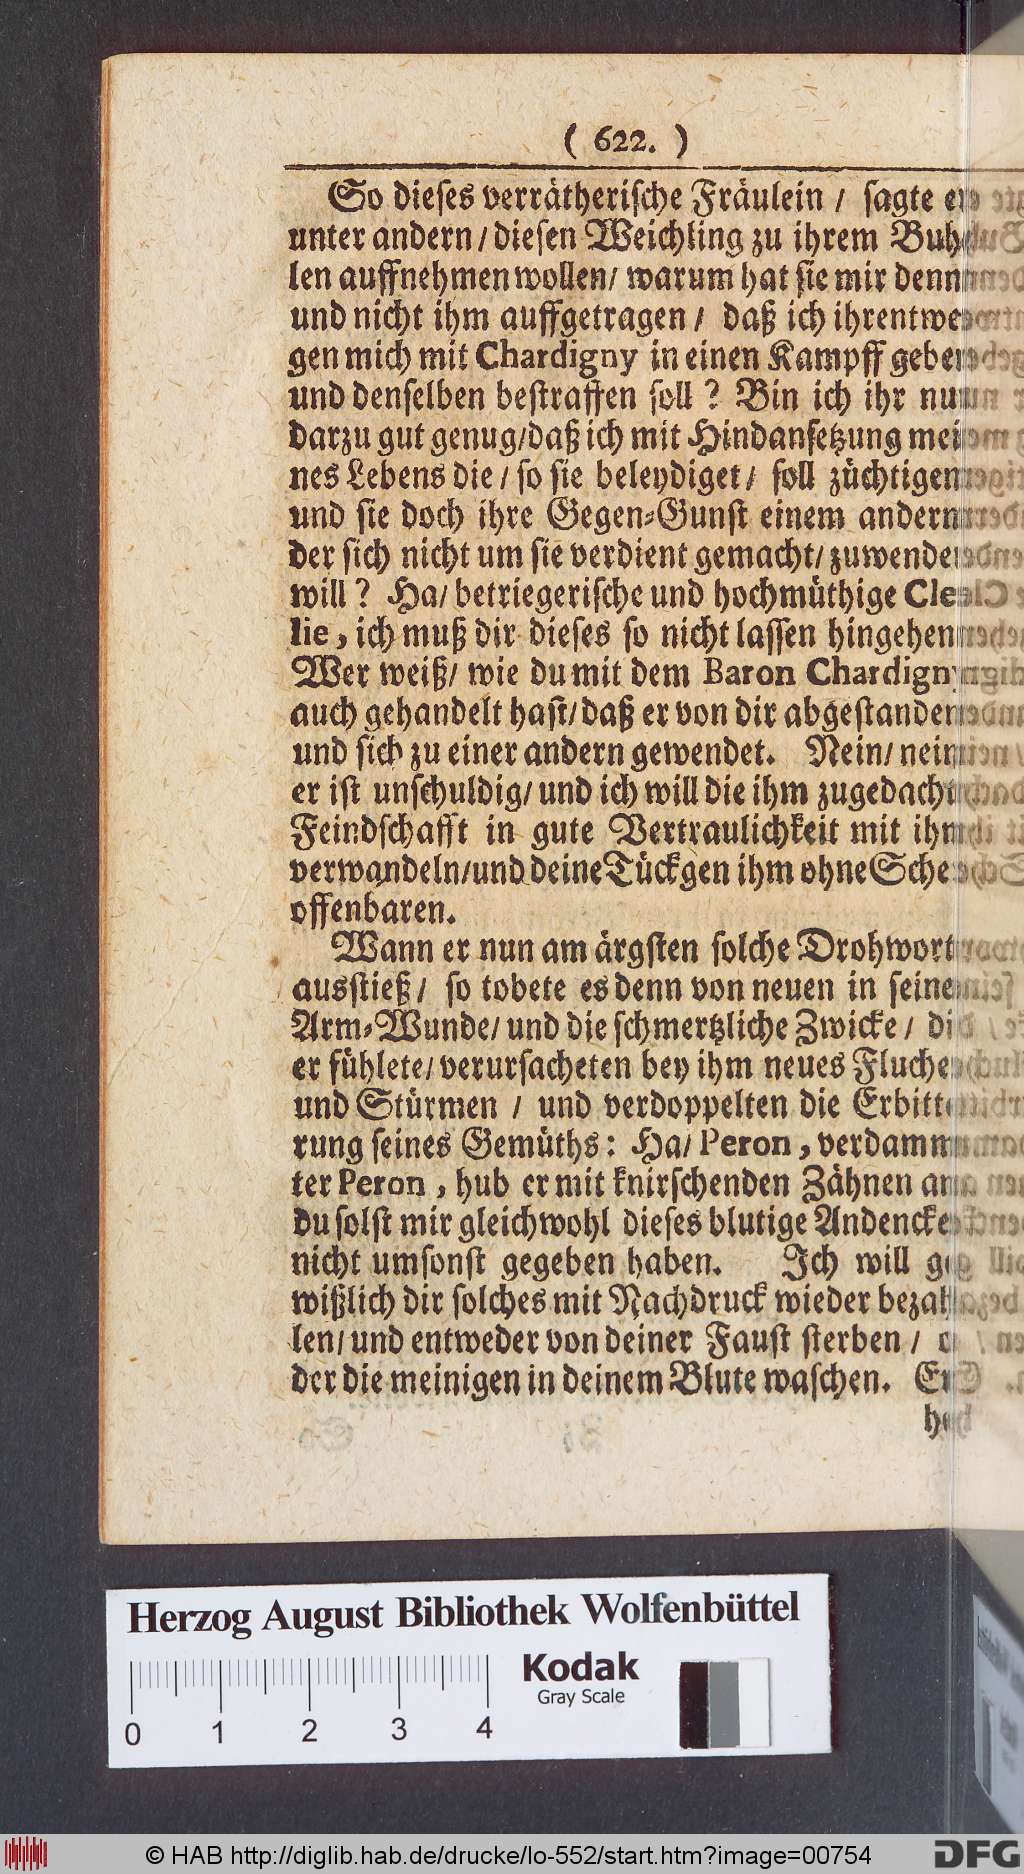 ( 622. )
So dieses verrätherische Fräulein / sagte er
unter andern / diesen Weichling zu ihrem Buh-
len auffnehmen wollen / warum hat sie mir denn
und nicht ihm auffgetragen / daß ich ihrentwe-
gen mich mit Chardigny in einen Kampff geben
und denselben bestraffen soll ? Bin ich ihr nun
darzu gut genug / daß ich mit Hindansetzung mei-
nes Lebens die / so sie beleydiget / soll züchtigen
und sie doch ihre Gegen-Gunst einem andern
der sich nicht um sie verdient gemacht / zuwenden
will ? Ha / betriegerische und hochmüthige Cle-
lie, ich muß dir dieses so nicht lassen hingehen
Wer weiß / wie du mit dem Baron Chardigny
auch gehandelt hast / daß er von dir abgestanden
und sich zu einer andern gewendet. Nein / nein
er ist unschuldig / und ich will die ihm zugedacht
Feindschafft in gute Vertraulichkeit mit ihm
verwandeln / und deine Tückgen ihm ohne Sche
offenbaren.
Wann er nun am ärgsten solche Drohwort
ausstieß / so tobete es denn von neuen in seine
Arm-Wunde / und die schmertzliche Zwicke / die
er fühlete / verursacheten bey ihm neues Fluche
und Stürmen / und verdoppelten die Erbitte-
rung seines Gemüths: Ha / Peron, verdamm-
ter Peron, hub er mit knirschenden Zähnen an
du solst mir gleichwohl dieses blutige Andencke
nicht umsonst gegeben haben. Ich will ge-
wißlich dir solches mit Nachdruck wieder bezah-
len / und entweder von deiner Faust sterben / o-
der die meinigen in deinem Blute waschen. Er
Herzog August Bibliothek Wolfenbüttel
Kodak
Gray Scale
0 1 2 3 4
© HAB http://diglib.hab.de/drucke/lo-552/start.htm?image=00754
DFG